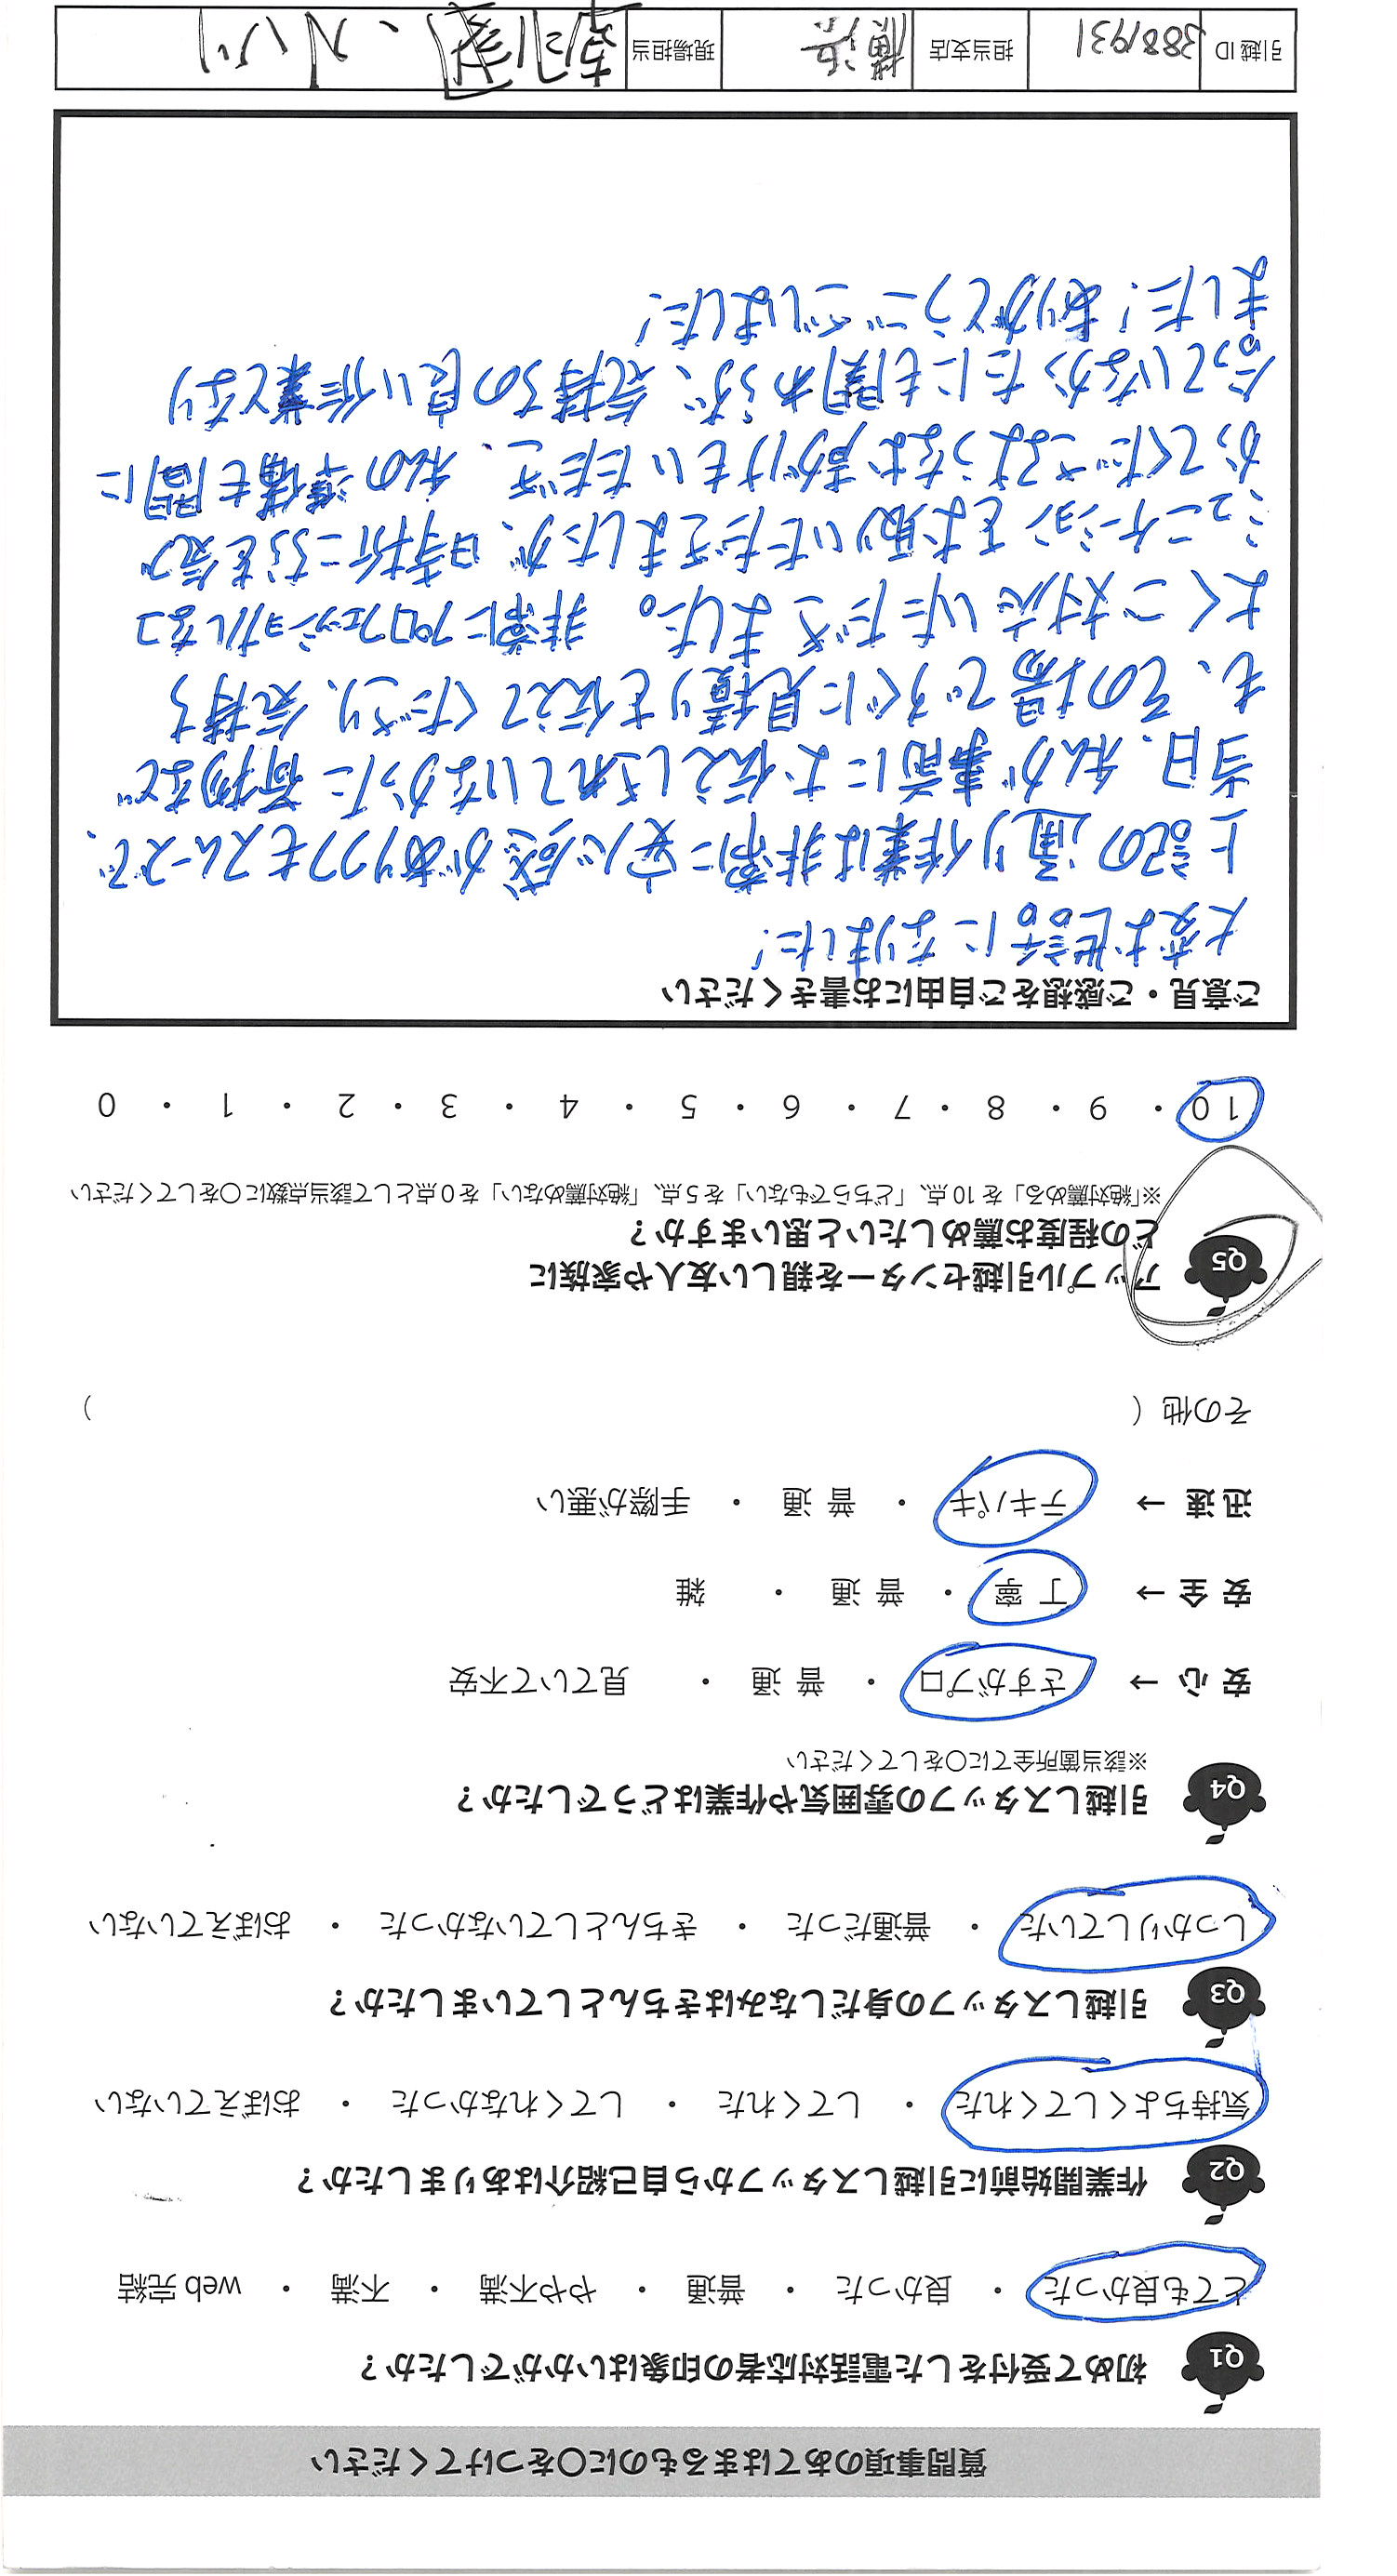 質問事項のあてはまるものに〇をつけてください
Q1 初めて受付をした電話対応者の印象はいかがでしたか？
とても良かった ・ 良かった ・ 普通 ・ やや不満 ・ 不満 ・ web 完結
Q2 作業開始前に引越しスタッフから自己紹介はありましたか？
気持ちよくしてくれた ・ してくれた ・ してくれなかった ・ おぼえていない
Q3 引越しスタッフの身だしなみはきちんとしていましたか？
しっかりしていた ・ 普通だった ・ きちんとしていなかった ・ おぼえていない
Q4 引越しスタッフの雰囲気や作業はどうでしたか？
※該当箇所全てに〇をしてください
安 心 → さすがプロ ・ 普 通 ・ 見ていて不安
安 全 → 丁 寧 ・ 普 通 ・ 雑
迅 速 → テキパキ ・ 普 通 ・ 手際が悪い
その他（ ）
Q5 アップル引越センターを親しい友人や家族に
どの程度お薦めしたいと思いますか？
※「絶対薦める」を 10 点、「どちらでもない」を 5 点、「絶対薦めない」を 0 点として該当点数に〇をしてください
10 ・ 9 ・ 8 ・ 7 ・ 6 ・ 5 ・ 4 ・ 3 ・ 2 ・ 1 ・ 0
ご意見・ご感想をご自由にお書きください
大変お世話になりました！
上記の通り作業は非常に安心感がありつつもスムーズで、
当日、私が事前にお伝えしきれていなかった荷物など
も、その場ですぐに見積りを伝えてくださり、気持ち
よくご対応いただきました。非常にプロフェッショナルなコ
ミュニケーションをお取りいただきましたが、時折こちらを気づ
かってくださるようなお声がけもいただき、私の準備も間に
合っていなかったにも関わらず、気持ちの良い作業となり
ました！ありがとうございました！
引越 ID 3881931 担当支店 横浜 現場担当